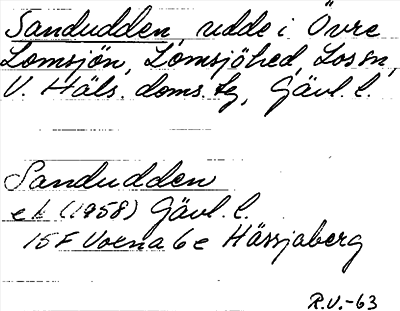 Sandudden, udde i Övre
Lomsjön, Lomsjöhed, Lossn,
V. Häls. doms. tg, Gävl. l.
Sandudden
ek (1958) Gävl. l.
15F Voxna 6e Hässjaberg
R.V.-63